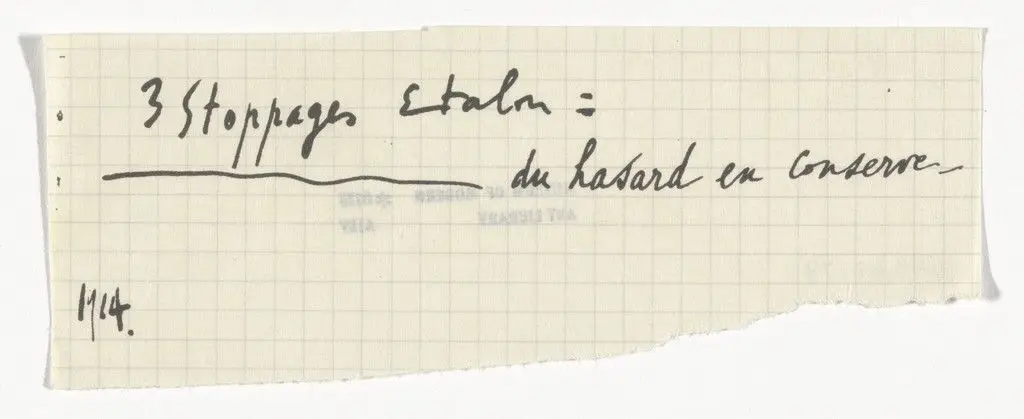 3 Stoppages Etalon =
du hasard en conserve –
1914.